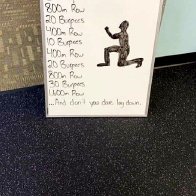 800m Row
20 Burpees
400m Row
10 Burpees
400m Row
20 Burpees
800m Row
30 Burpees
1,600m Row
...And don't you dare lay down.